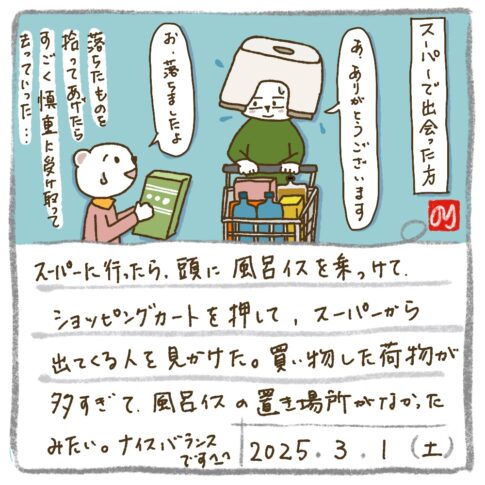 スーパーで出会った方
あ、ありがとうございます
お、落ちましたよ
落ちたものを
拾ってあげたら
すごく慎重に受け取って
去っていった…
スーパーに行ったら、頭に風呂イスを乗っけて、
ショッピングカートを押して、スーパーから
出てくる人を見かけた。買い物した荷物が
多すぎて、風呂イスの置き場所がなかった
みたい。ナイスバランス
です^^
2025.3.1(土)